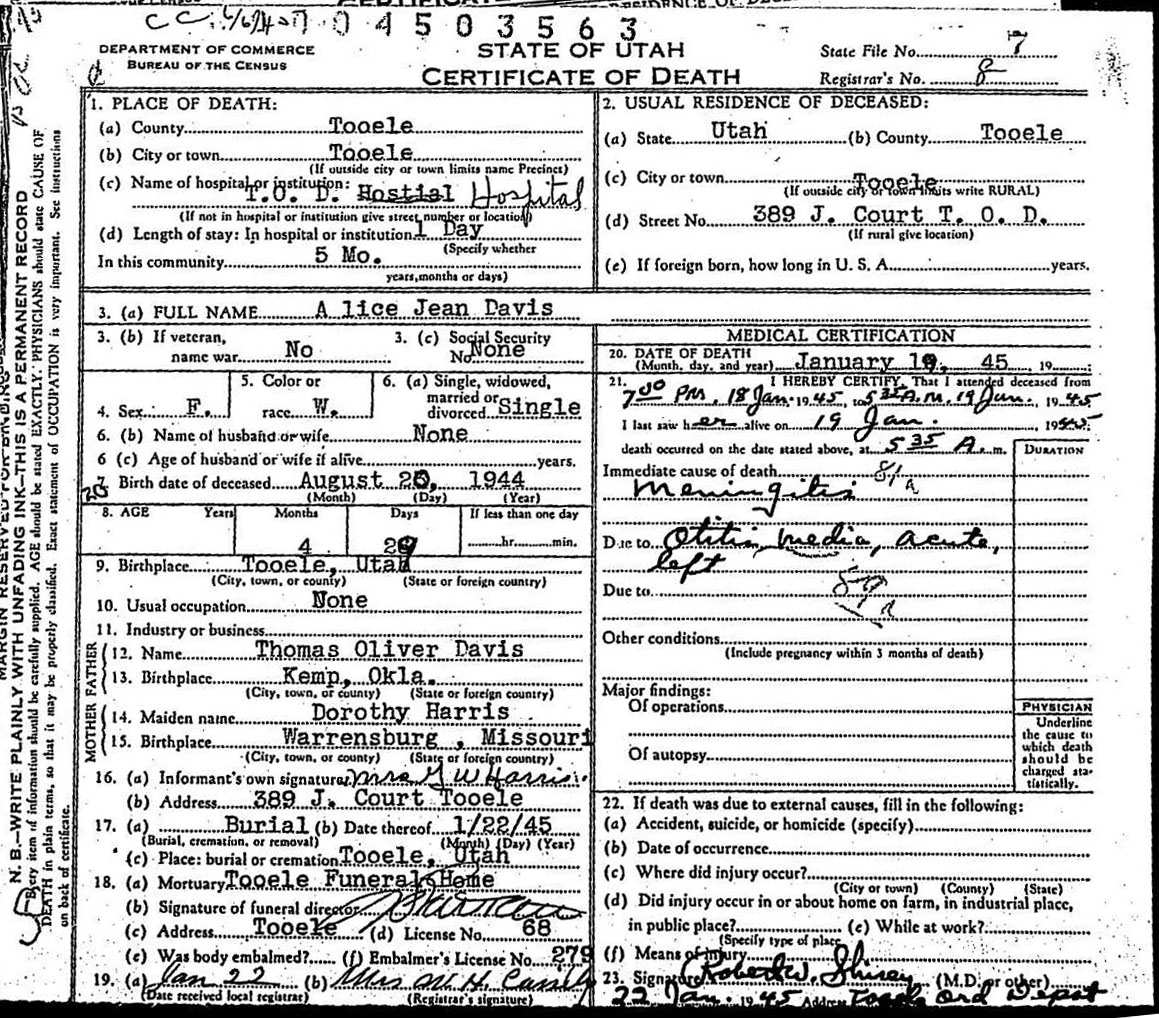 C C.
0 4 5 0 3 5 6 3
DEPARTMENT OF COMMERCE
BUREAU OF THE CENSUS
STATE OF UTAH
CERTIFICATE OF DEATH
State File No. 7
Registrar's No. 8
1. PLACE OF DEATH:
(a) County Tooele
(b) City or town Tooele
(If outside city or town limits name Precinct)
(c) Name of hospital or institution:
T.O. D. Hostial Hospital
(If not in hospital or institution give street number or location)
(d) Length of stay: In hospital or institution 1 Day
(Specify whether
In this community 5 Mo.
years, months or days)
2. USUAL RESIDENCE OF DECEASED:
(a) State Utah (b) County Tooele
(c) City or town Tooele
(If outside city or town limits write RURAL)
(d) Street No. 389 J. Court T. O. D.
(If rural give location)
(e) If foreign born, how long in U. S. A. years.
3. (a) FULL NAME A lice Jean Davis
3. (b) If veteran, name war No
3. (c) Social Security No. None
4. Sex F.
5. Color or race W.
6. (a) Single, widowed, married or divorced Single
6. (b) Name of husband or wife None
6 (c) Age of husband or wife if alive years.
7. Birth date of deceased August 20, 1944
(Month) (Day) (Year)
8. AGE Years Months Days If less than one day
4 29 hr. min.
9. Birthplace Tooele, Utah
(City, town, or county) (State or foreign country)
10. Usual occupation None
11. Industry or business
FATHER
12. Name Thomas Oliver Davis
13. Birthplace Kemp, Okla.
(City, town, or county) (State or foreign country)
MOTHER
14. Maiden name Dorothy Harris
15. Birthplace Warrensburg , Missouri
(City, town, or county) (State or foreign country)
16. (a) Informant's own signature Mrs G W Harris.
(b) Address 389 J. Court Tooele
17. (a) Burial (b) Date thereof 1/22/45
(Burial, cremation, or removal) (Month) (Day) (Year)
(c) Place: burial or cremation Tooele, Utah
18. (a) Mortuary Tooele Funeral Home
(b) Signature of funeral director
(c) Address Tooele (d) License No. 68
(e) Was body embalmed? (f) Embalmer's License No. 279
19. (a) Jan 22 (b) Mrs M. H.
(Date received local registrar) (Registrar's signature)
MEDICAL CERTIFICATION
20. DATE OF DEATH
(Month, day, and year) January 19, 45 19
21. I HEREBY CERTIFY, That I attended deceased from
7 00 PM, 18 Jan. 1945, to 5 35 A.M. 19 Jan. 1945
I last saw her alive on 19 Jan. 1945
death occurred on the date stated above, at 5 35 A. m.
DURATION
Immediate cause of death 81a
Meningitis
Due to Otitis media, acute,
left
Due to 89a
Other conditions
(Include pregnancy within 3 months of death)
Major findings:
Of operations
Of autopsy
PHYSICIAN
Underline
the cause to
which death
should be
charged sta-
tistically.
22. If death was due to external causes, fill in the following:
(a) Accident, suicide, or homicide (specify)
(b) Date of occurrence
(c) Where did injury occur?
(City or town) (County) (State)
(d) Did injury occur in or about home on farm, in industrial place,
in public place? (e) While at work?
(Specify type of place
(f) Means of injury
23. Signature Robert W. Shirey (M.D. or other)
22 Jan. 1945 Address Tooele Ord Depot
MARGIN RESERVED FOR BINDING
N. B.—WRITE PLAINLY WITH UNFADING INK—THIS IS A PERMANENT RECORD
Every item of information should be carefully supplied. AGE should be stated EXACTLY. PHYSICIANS should state CAUSE OF
DEATH in plain terms, so that it may be properly classified. Exact statement of OCCUPATION is very important. See instructions
on back of certificate.